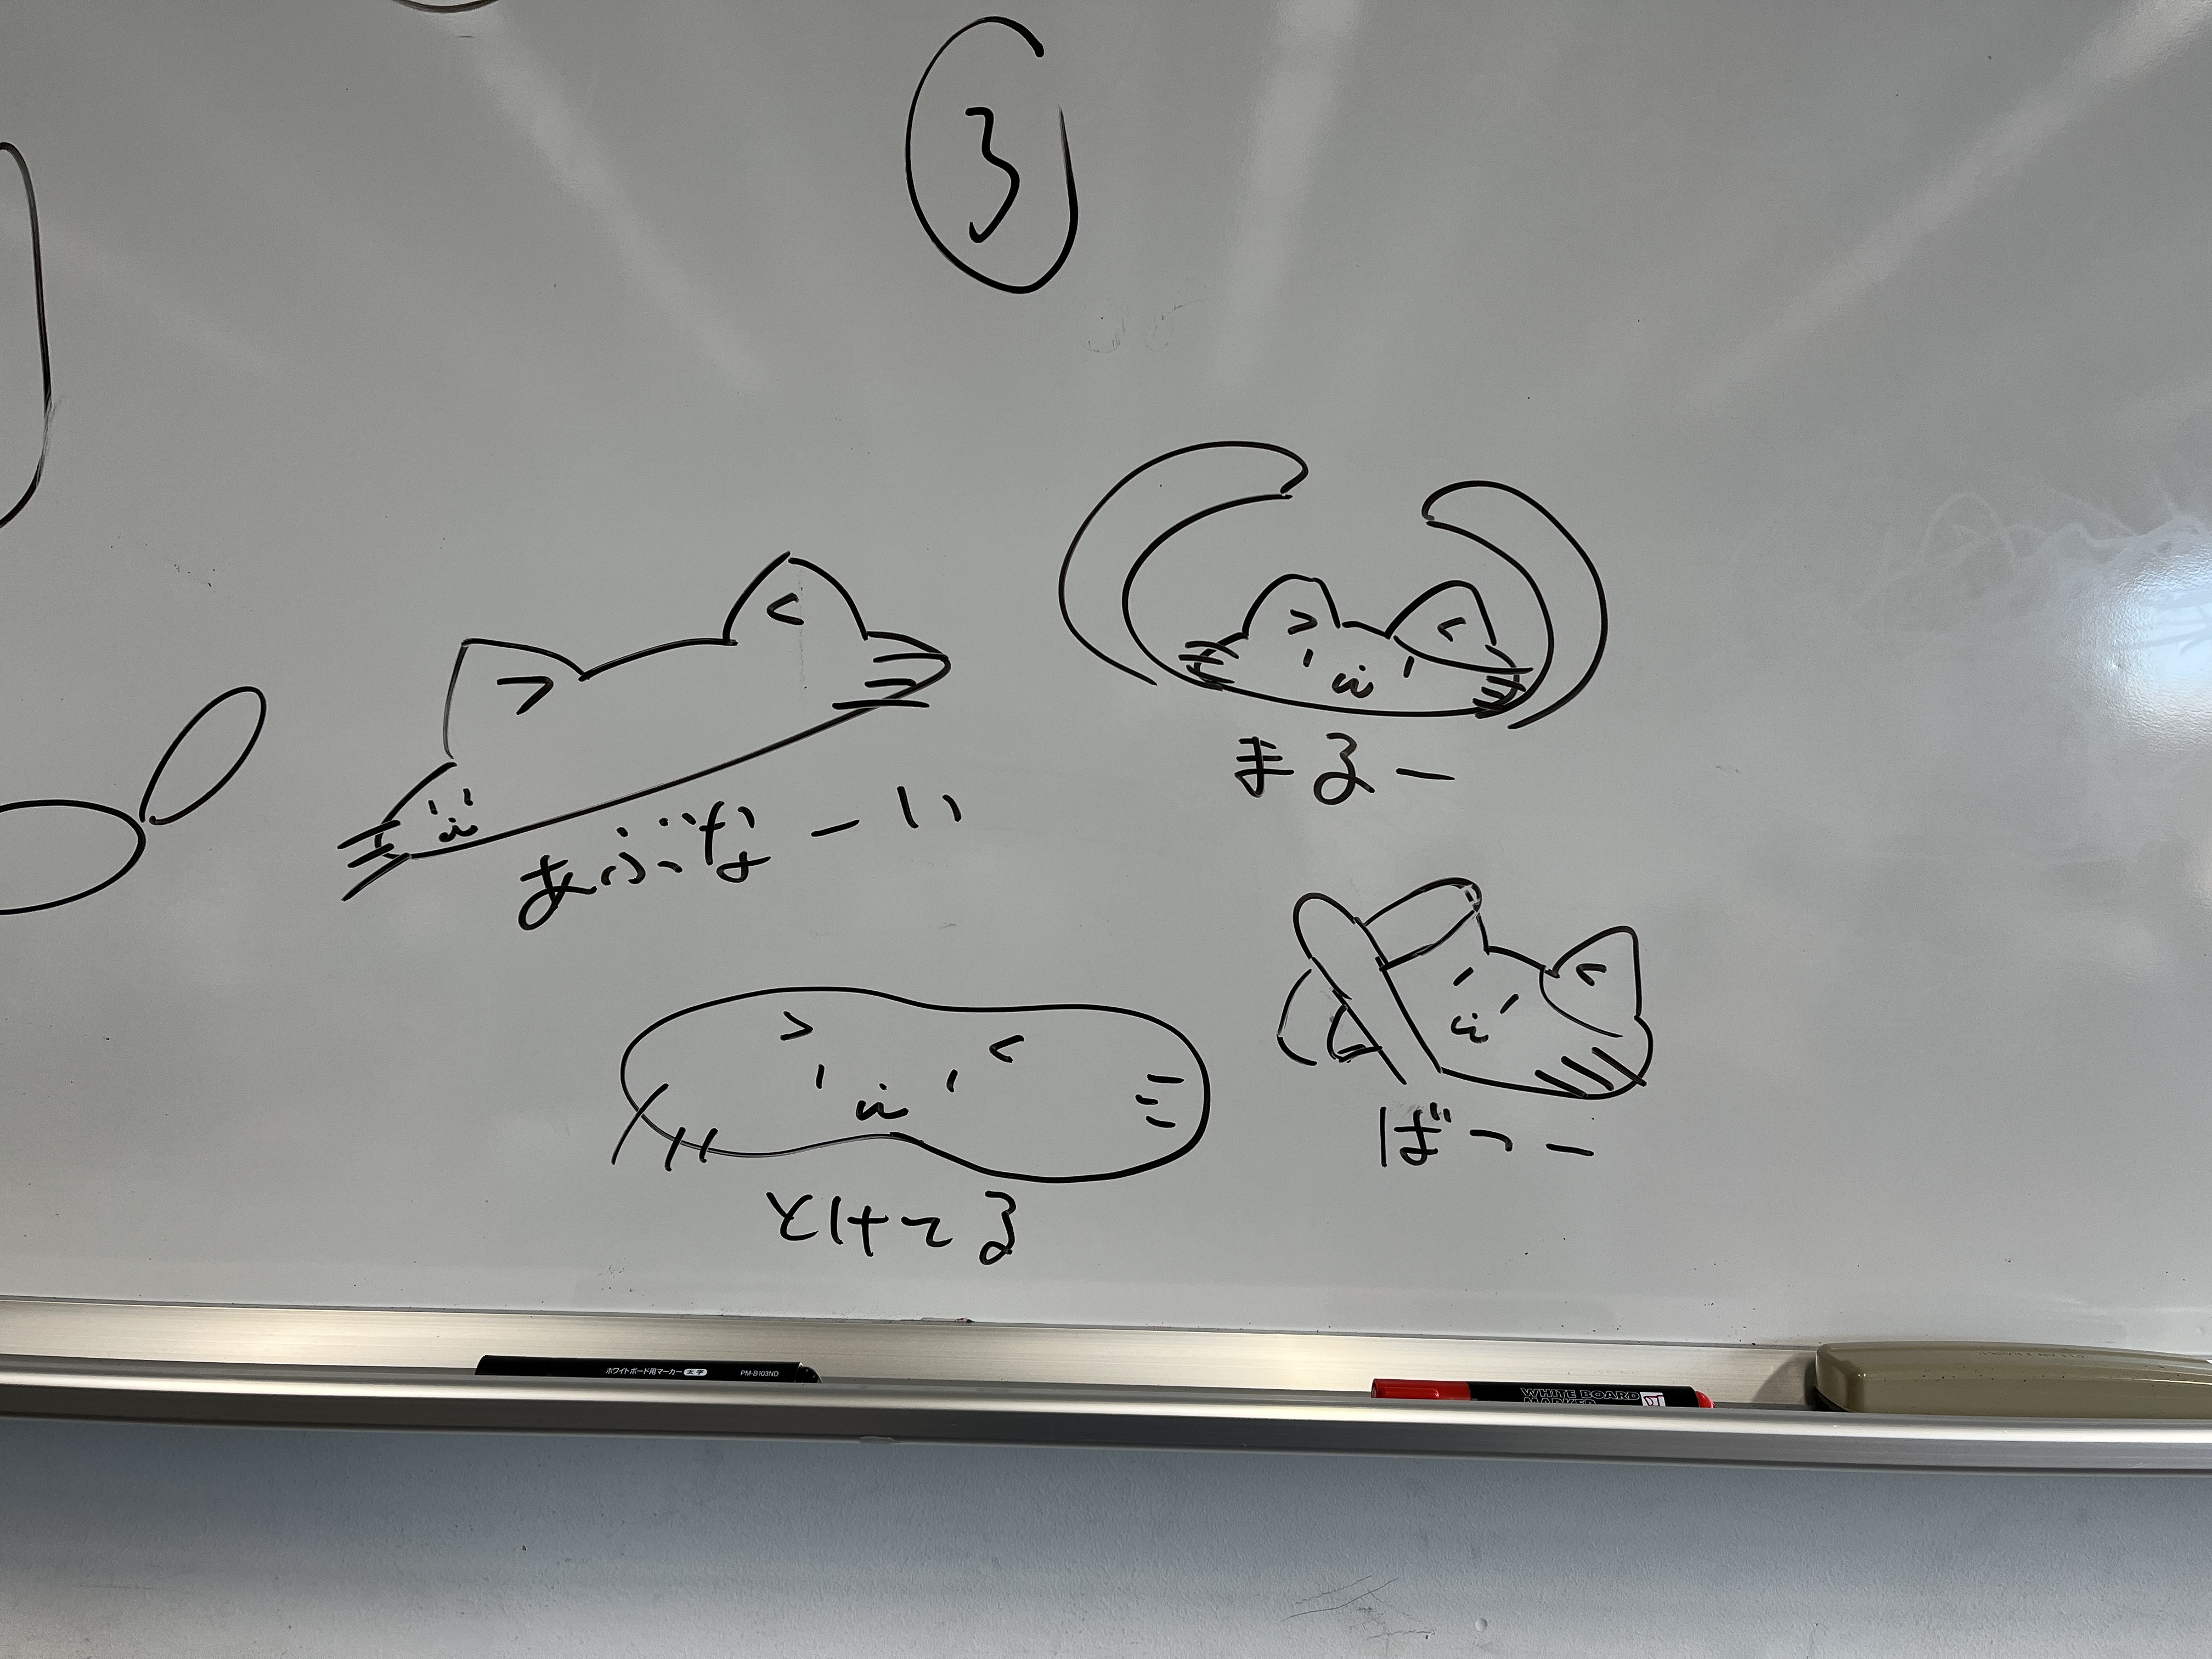 3
まるー
あぶなーい
ばつー
とけてる
ホワイトボード用マーカー 太字 PM-B103ND
WHITE BOARD
MARKER